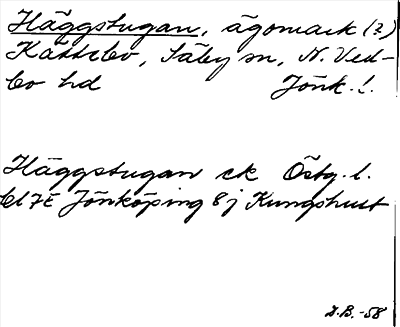 Häggstugan, ägomark (?)
Kättsbo, Säby sn, N. Ved-
bo hd Jönk. l.
Häggstugan ck Östg. l.
bl 7E Jönköping 8j Kungshult
I.B.-58